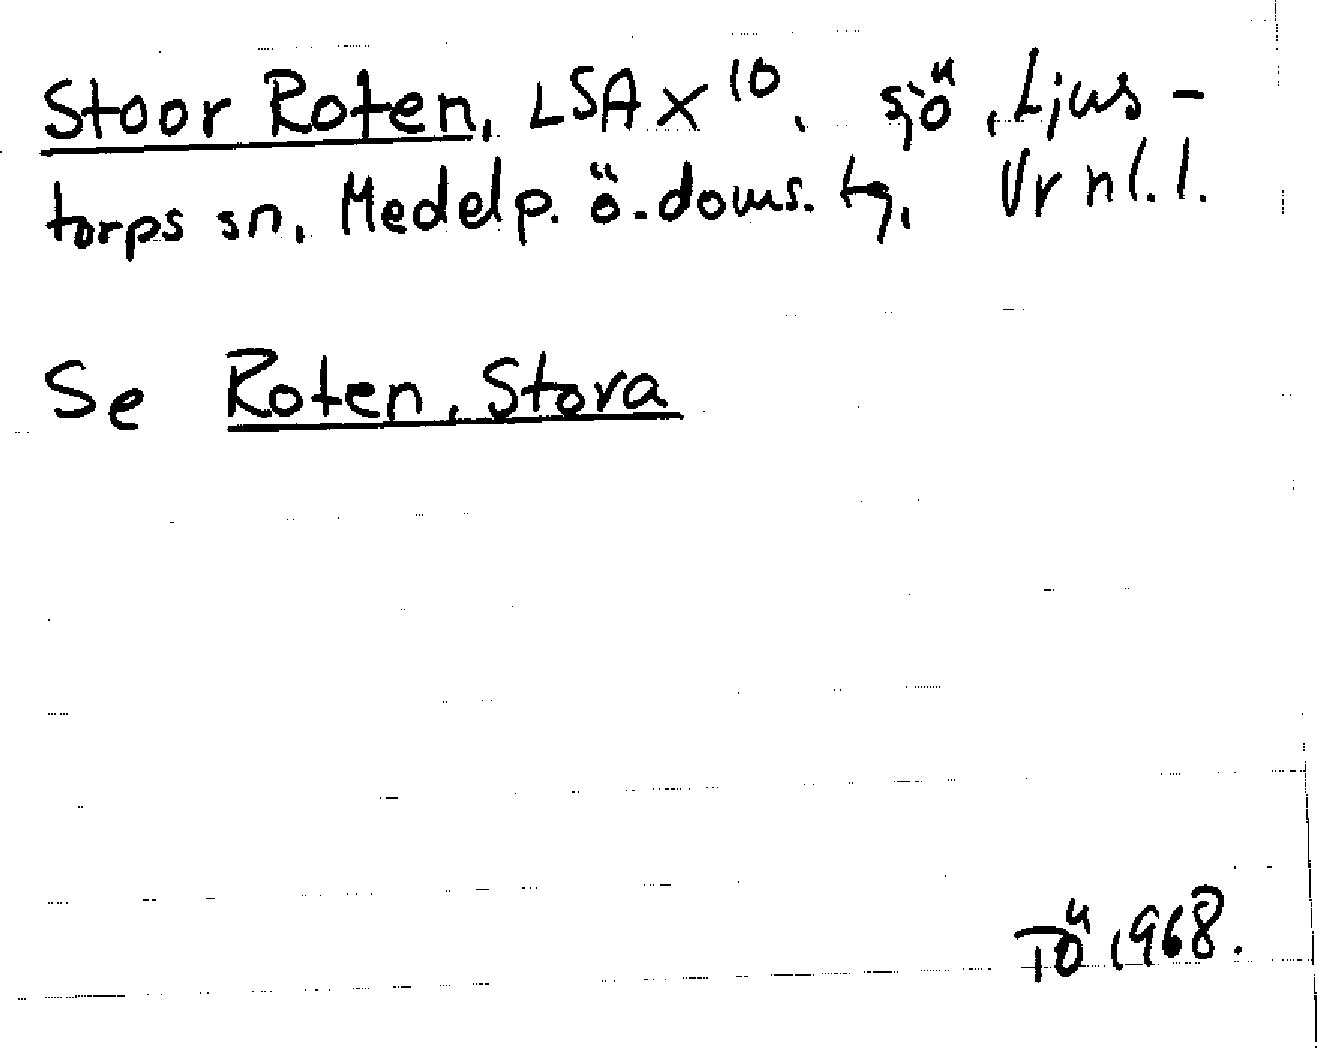 Stoor Roten, LSA X 10. sjö, Ljus-
torps sn, Medelp. ö. doms. tg, Vrnl. l.
Se Roten, Stora
TÖ 1968.